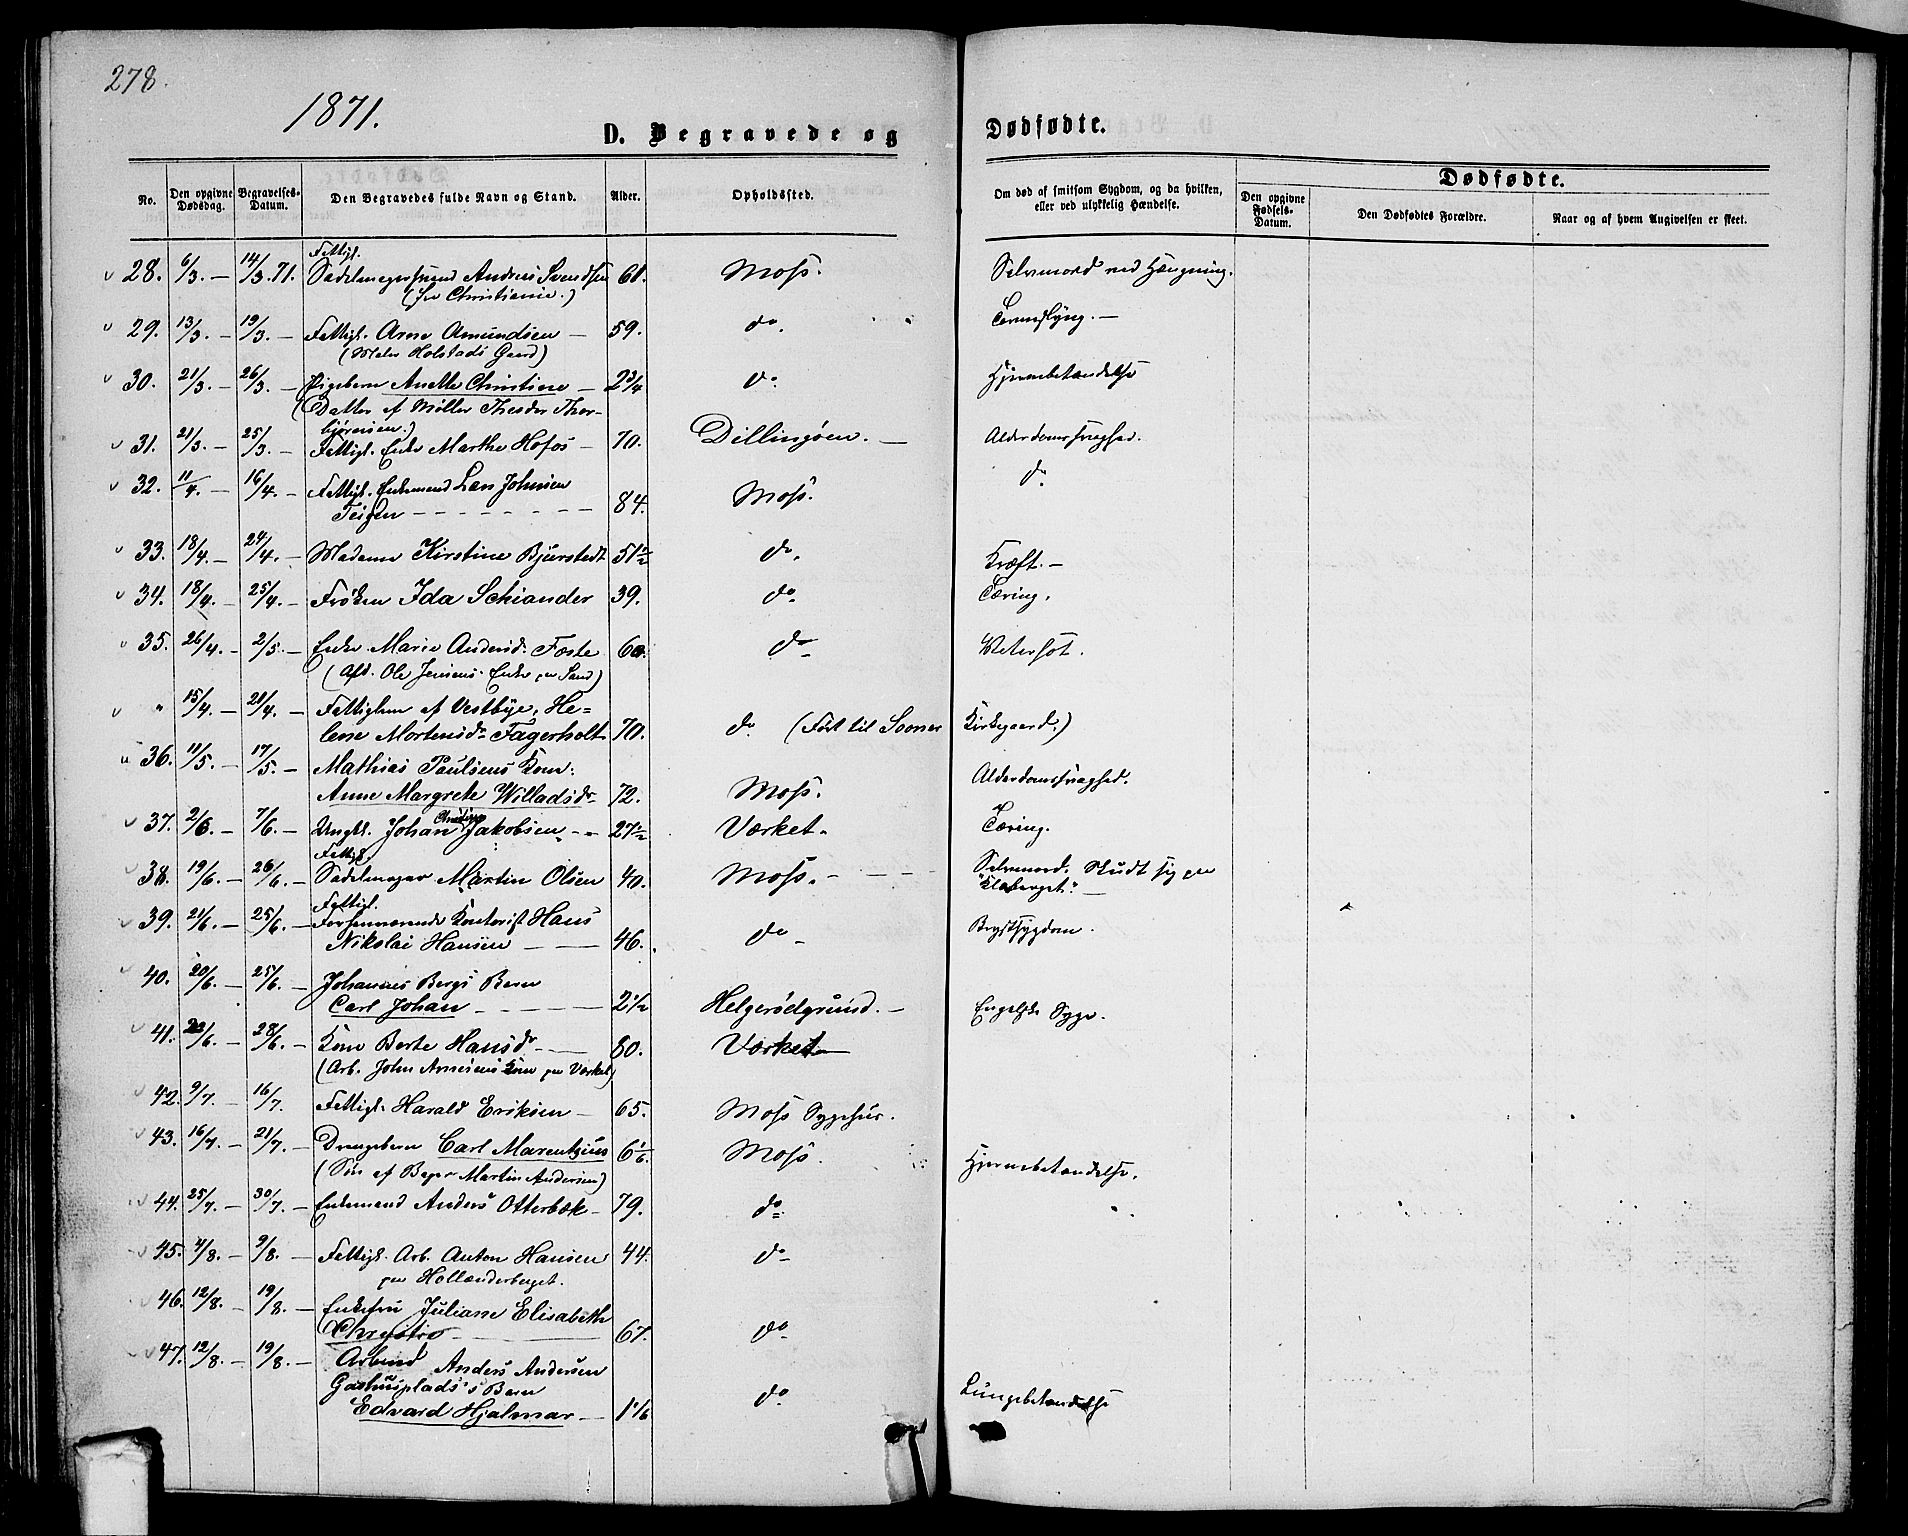 278.
1871.
D. Begravede og Dødfødte.
No. | Den opgivne Dødsdag. | Begravelses-Datum. | Den Begravedes fulde Navn og Stand. | Alder. | Opholdssted. | Om død af smitsom Sygdom, og da hvilken, eller ved ulykkelig Hændelse. | Dødfødte.
Den opgivne Fødsels-Datum. | Den Dødfødtes Forældre. | Naar og af hvem Angivelsen er skeet.
Fattigl.
28. 6/3. — 14/3. 71. Sadelmagersvend Andreas Svendsen 61. Moss. Selvmord ved Hængning.
(fra Christiania.)
29. 13/3. — 19/3. — Fattigl. Arne Amundsen — 59. do.
(Maler Holstads Gaard)
30. 21/3. — 26/3. — Pigebarn Anette Christine — 2 3/4 do. Hjernebetændelse
(Datter af Møller Theodor Thorbjørnsen.)
31. 21/3. — 25/3. — Fattigl. Enke Marthe Hofos — 70. Dillingøen. — Alderdomssvaghed.
32. 11/4. — 16/4. — Fattigl. Enkemand Lars Johnsen do
Teigen — 84. Moss.
33. 18/4. — 24/4. — Madame Kirstine Bjurstedt 51 1/2 do. Kræft. —
34. 18/4. — 25/4. — Frøken Ida Schiander 39. do. Tæring.
35. 26/4. — 2/5. — Enke Marie Andersdr. Foste 60. do Watersot.
(Afd. Ole Jensens Enke paa Sand)
" 15/4. — 21/4. — Fattiglem af Vestbye, He=
lene Mortensdr. Fagerholt 70. do. (Ført til Sooner Kirkegaard.)
36. 11/5. — 17/5. — Mathias Paulsens Kone: Alderdomssvaghed.
Anne Margrete Willadsdr. 72. Moss.
37. 2/6. — 7/6. — Ungkl. Johan Jakobsen — 27 1/2 Værket. Tæring.
Fattigl.
38. 19/6. — 26/6. — Sadelmager Martin Olsen 40. Moss. — Selvmord. Skudt sig paa
Fattigl.
39. 21/6. — 25/6. — Forhenværende Kontorist Hans Brystsygdom.
Nikolai Hansen — 46. do
40. 20/6. — 25/6. — Johannes Bergs Barn
Carl Johan — 2 1/2 Helgerødgrund. — Engelske Syge.
41. 22/6. — 28/6. — Kone Berte Hansdr. — 80. Værket
(Arb. John Arnesens Kone paa Værket)
42. 9/7. — 16/7. Fattigl. Harald Eriksen — 65. Moss Sygehus.
43. 16/7. — 21/7. — Drengebarn Carl Marentzius 6 1/6. Moss. Hjernebetændelse.
(Søn af Bager Martin Andersen)
44. 25/7. — 30/7. — Enkemand Anders Otterbæk — 79. do.
45. 4/8. — 9/8. — Fattigl. Arb. Anton Hansen 44. do
paa Hollænderberget.
46. 12/8. — 19/8. — Enkefru Juliane Elisabeth
Chrystie — 67. do
47. 12/8. — 19/8. — Arbmd Anders Andersen
Gashusplads's Barn
Edvard Hjalmar — 1 1/6 do. Lungebetændelse